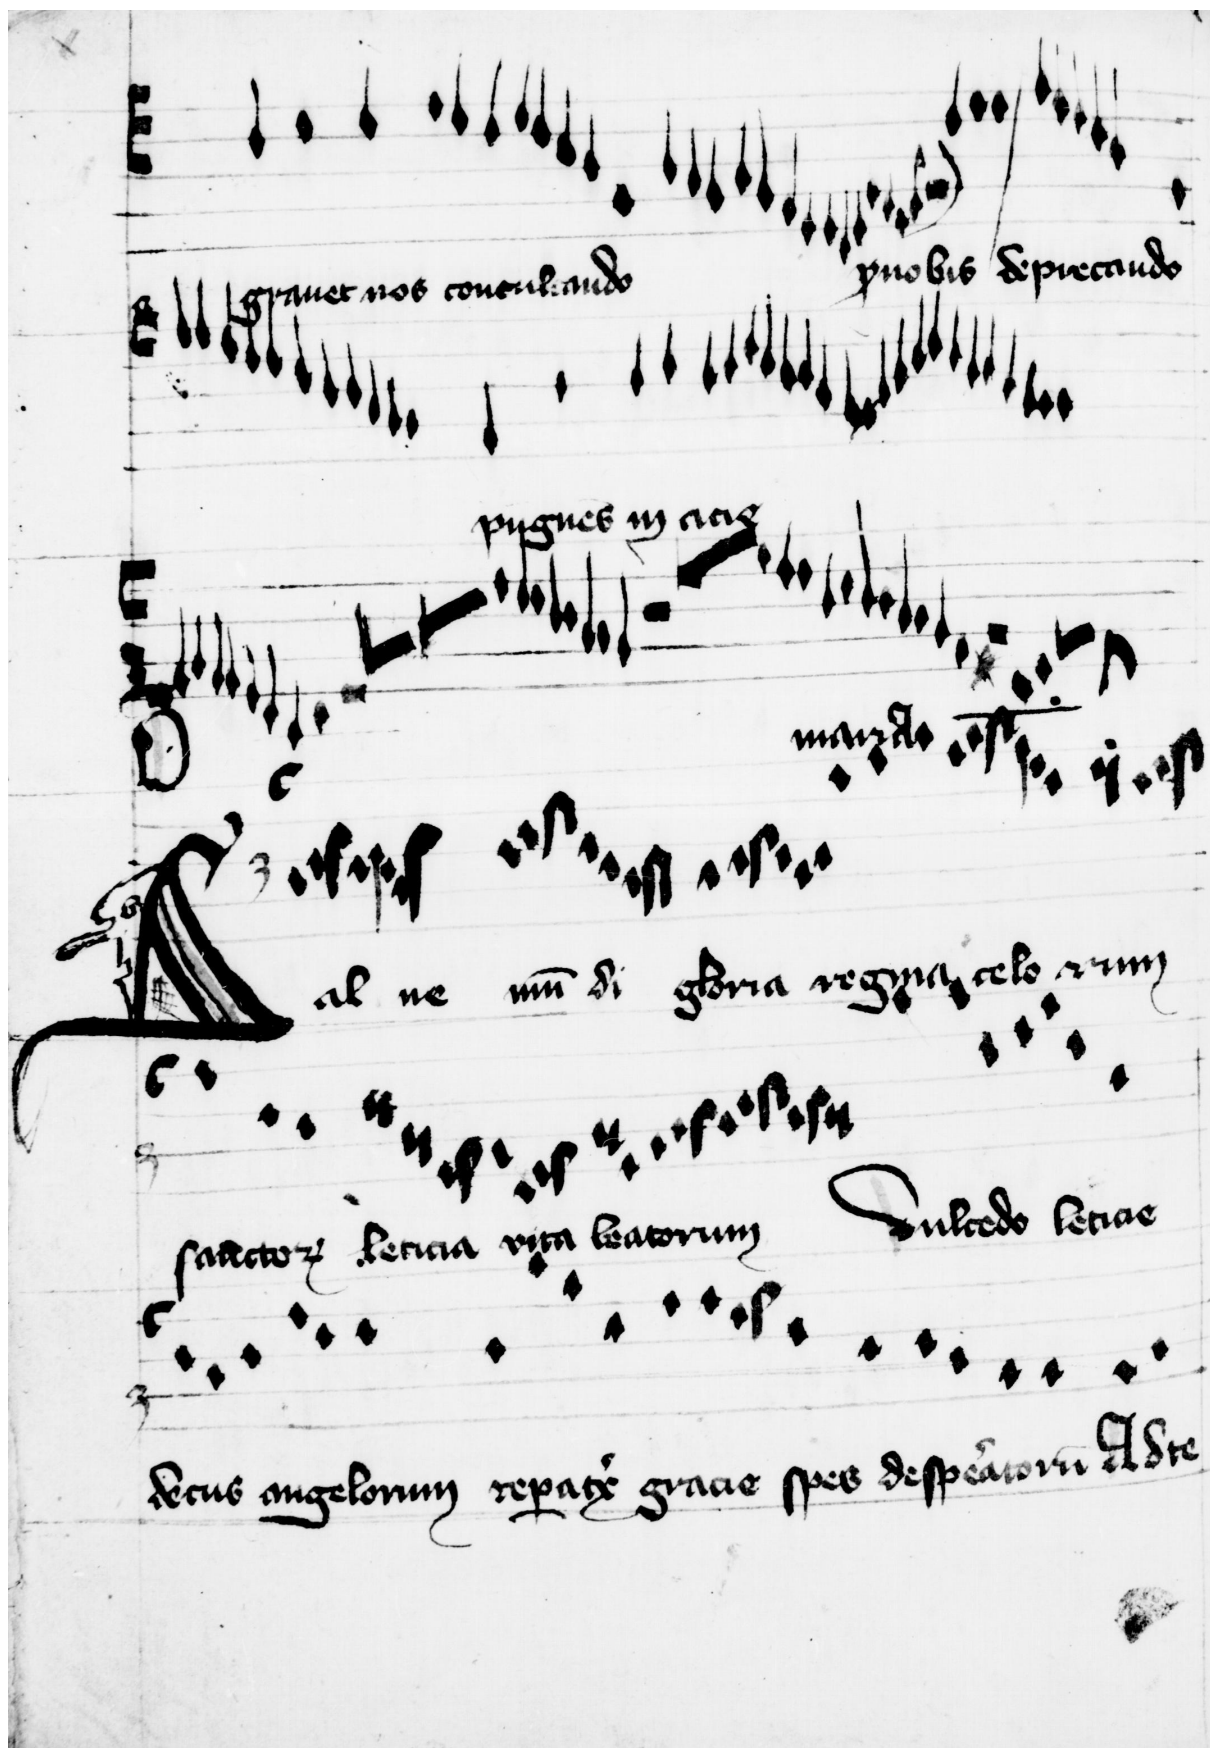 grauet nos conculcando p nobis deprecando
pugnes in acie
maria
Sal ue mū di gloria regina celo rum
sanctoꝝ leticia vita beatorum Dulcedo leticie
decus angelorum reꝑatx̉ gracie spes despatorū Ad te